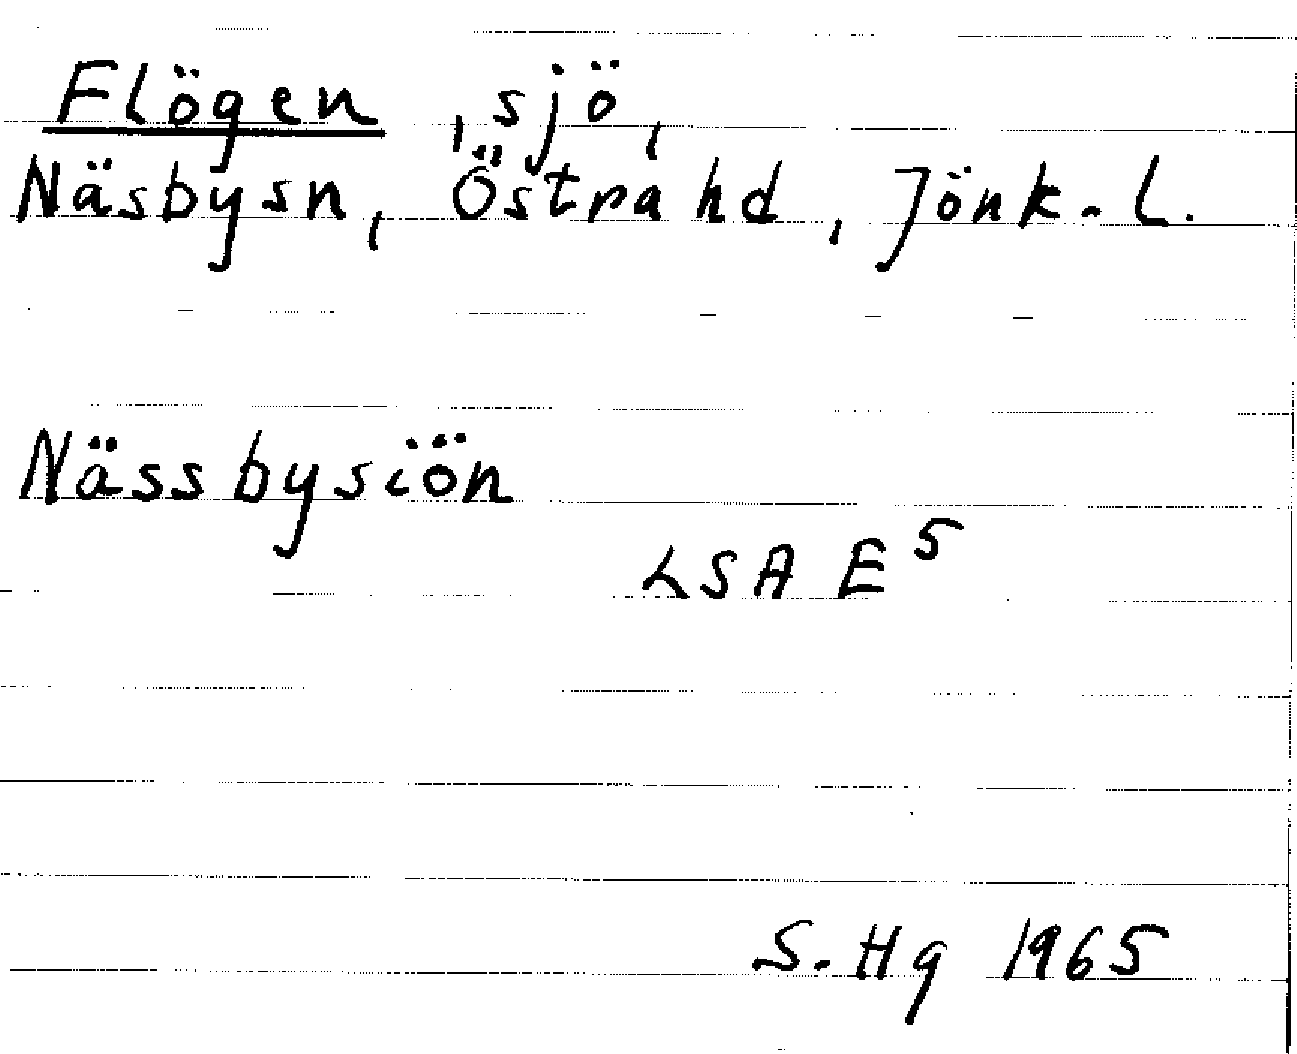 Flögen, sjö,
Näsbysn, Östra hd, Jönk. L.
Nässbysiön
LSA E5
S. Hg 1965